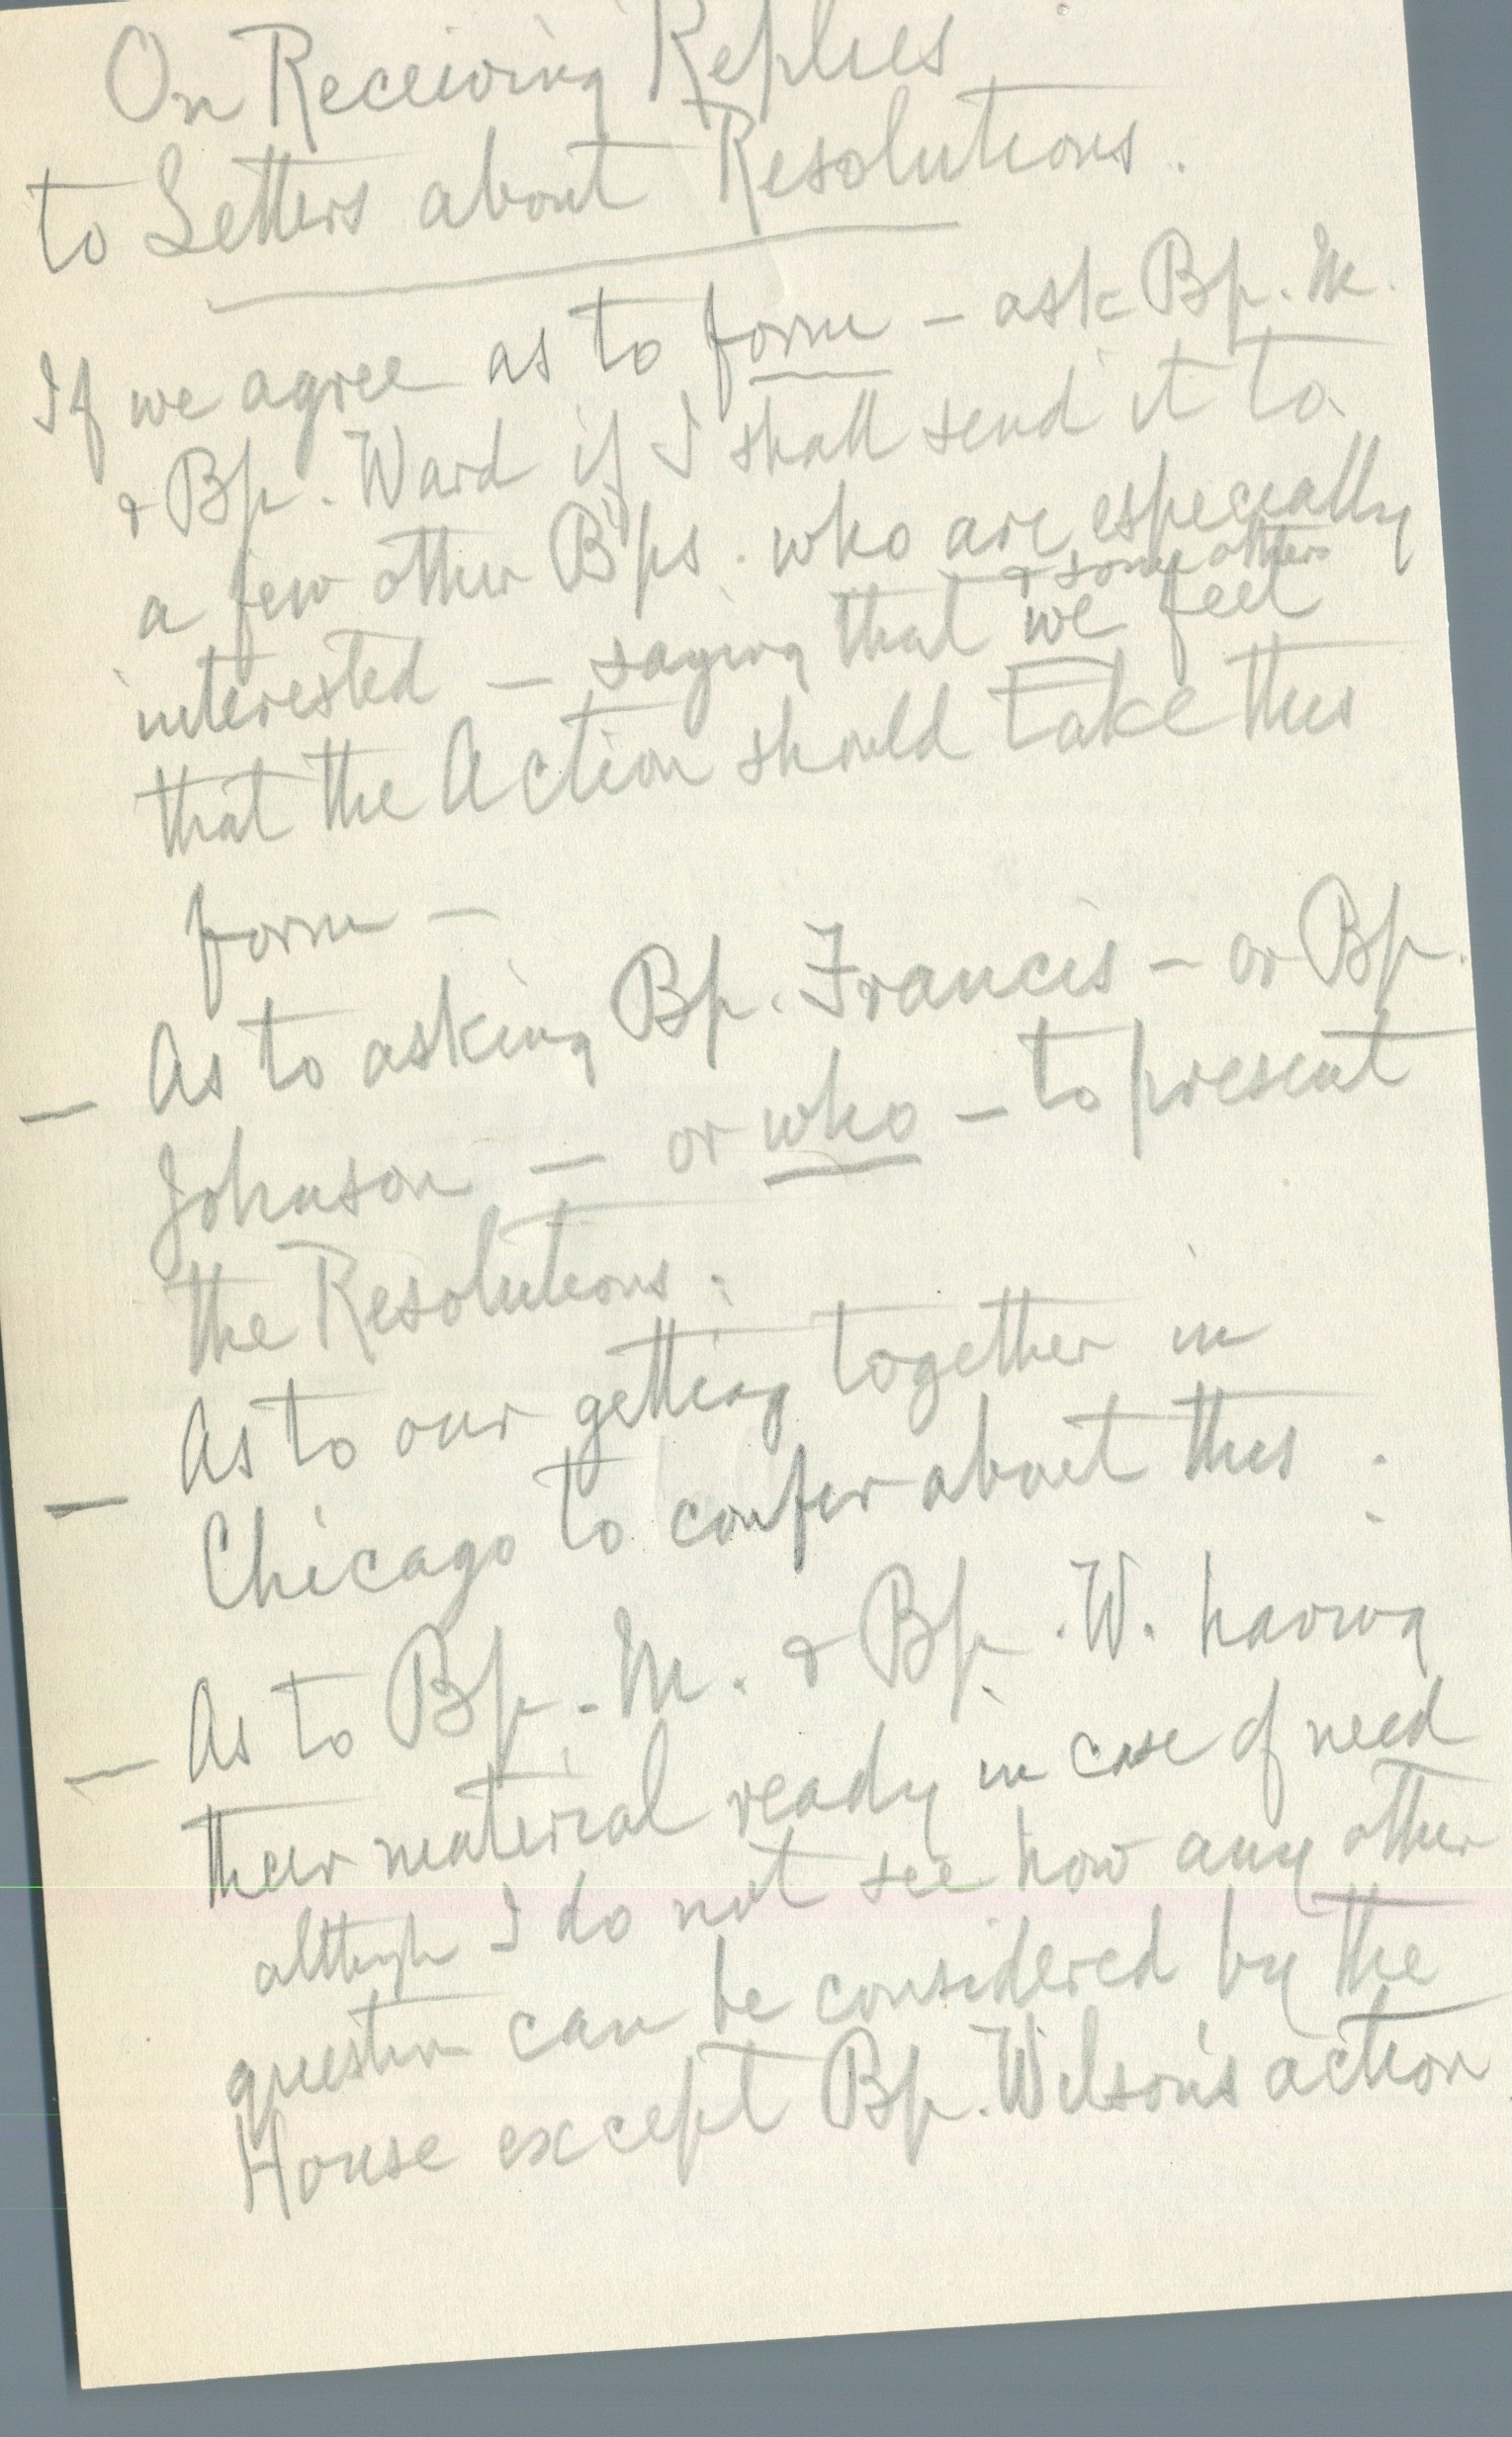 On Receiving Replies
to Letters about Resolutions.
If we agree as to form – ask Bp. M.
& Bp. Ward if I shall send it to
a few other B'ps. who are especially
interested – saying that we & some others feel
that the Action should take this
form –
– As to asking Bp. Francis – or Bp.
Johnson – or who – to present
the Resolutions:
– As to our getting together in
Chicago to confer about this :
– As to Bp. M. & Bp. W. having
their material ready in case of need
although I do not see how any other
question can be considered by the
House except Bp. Wilson's action